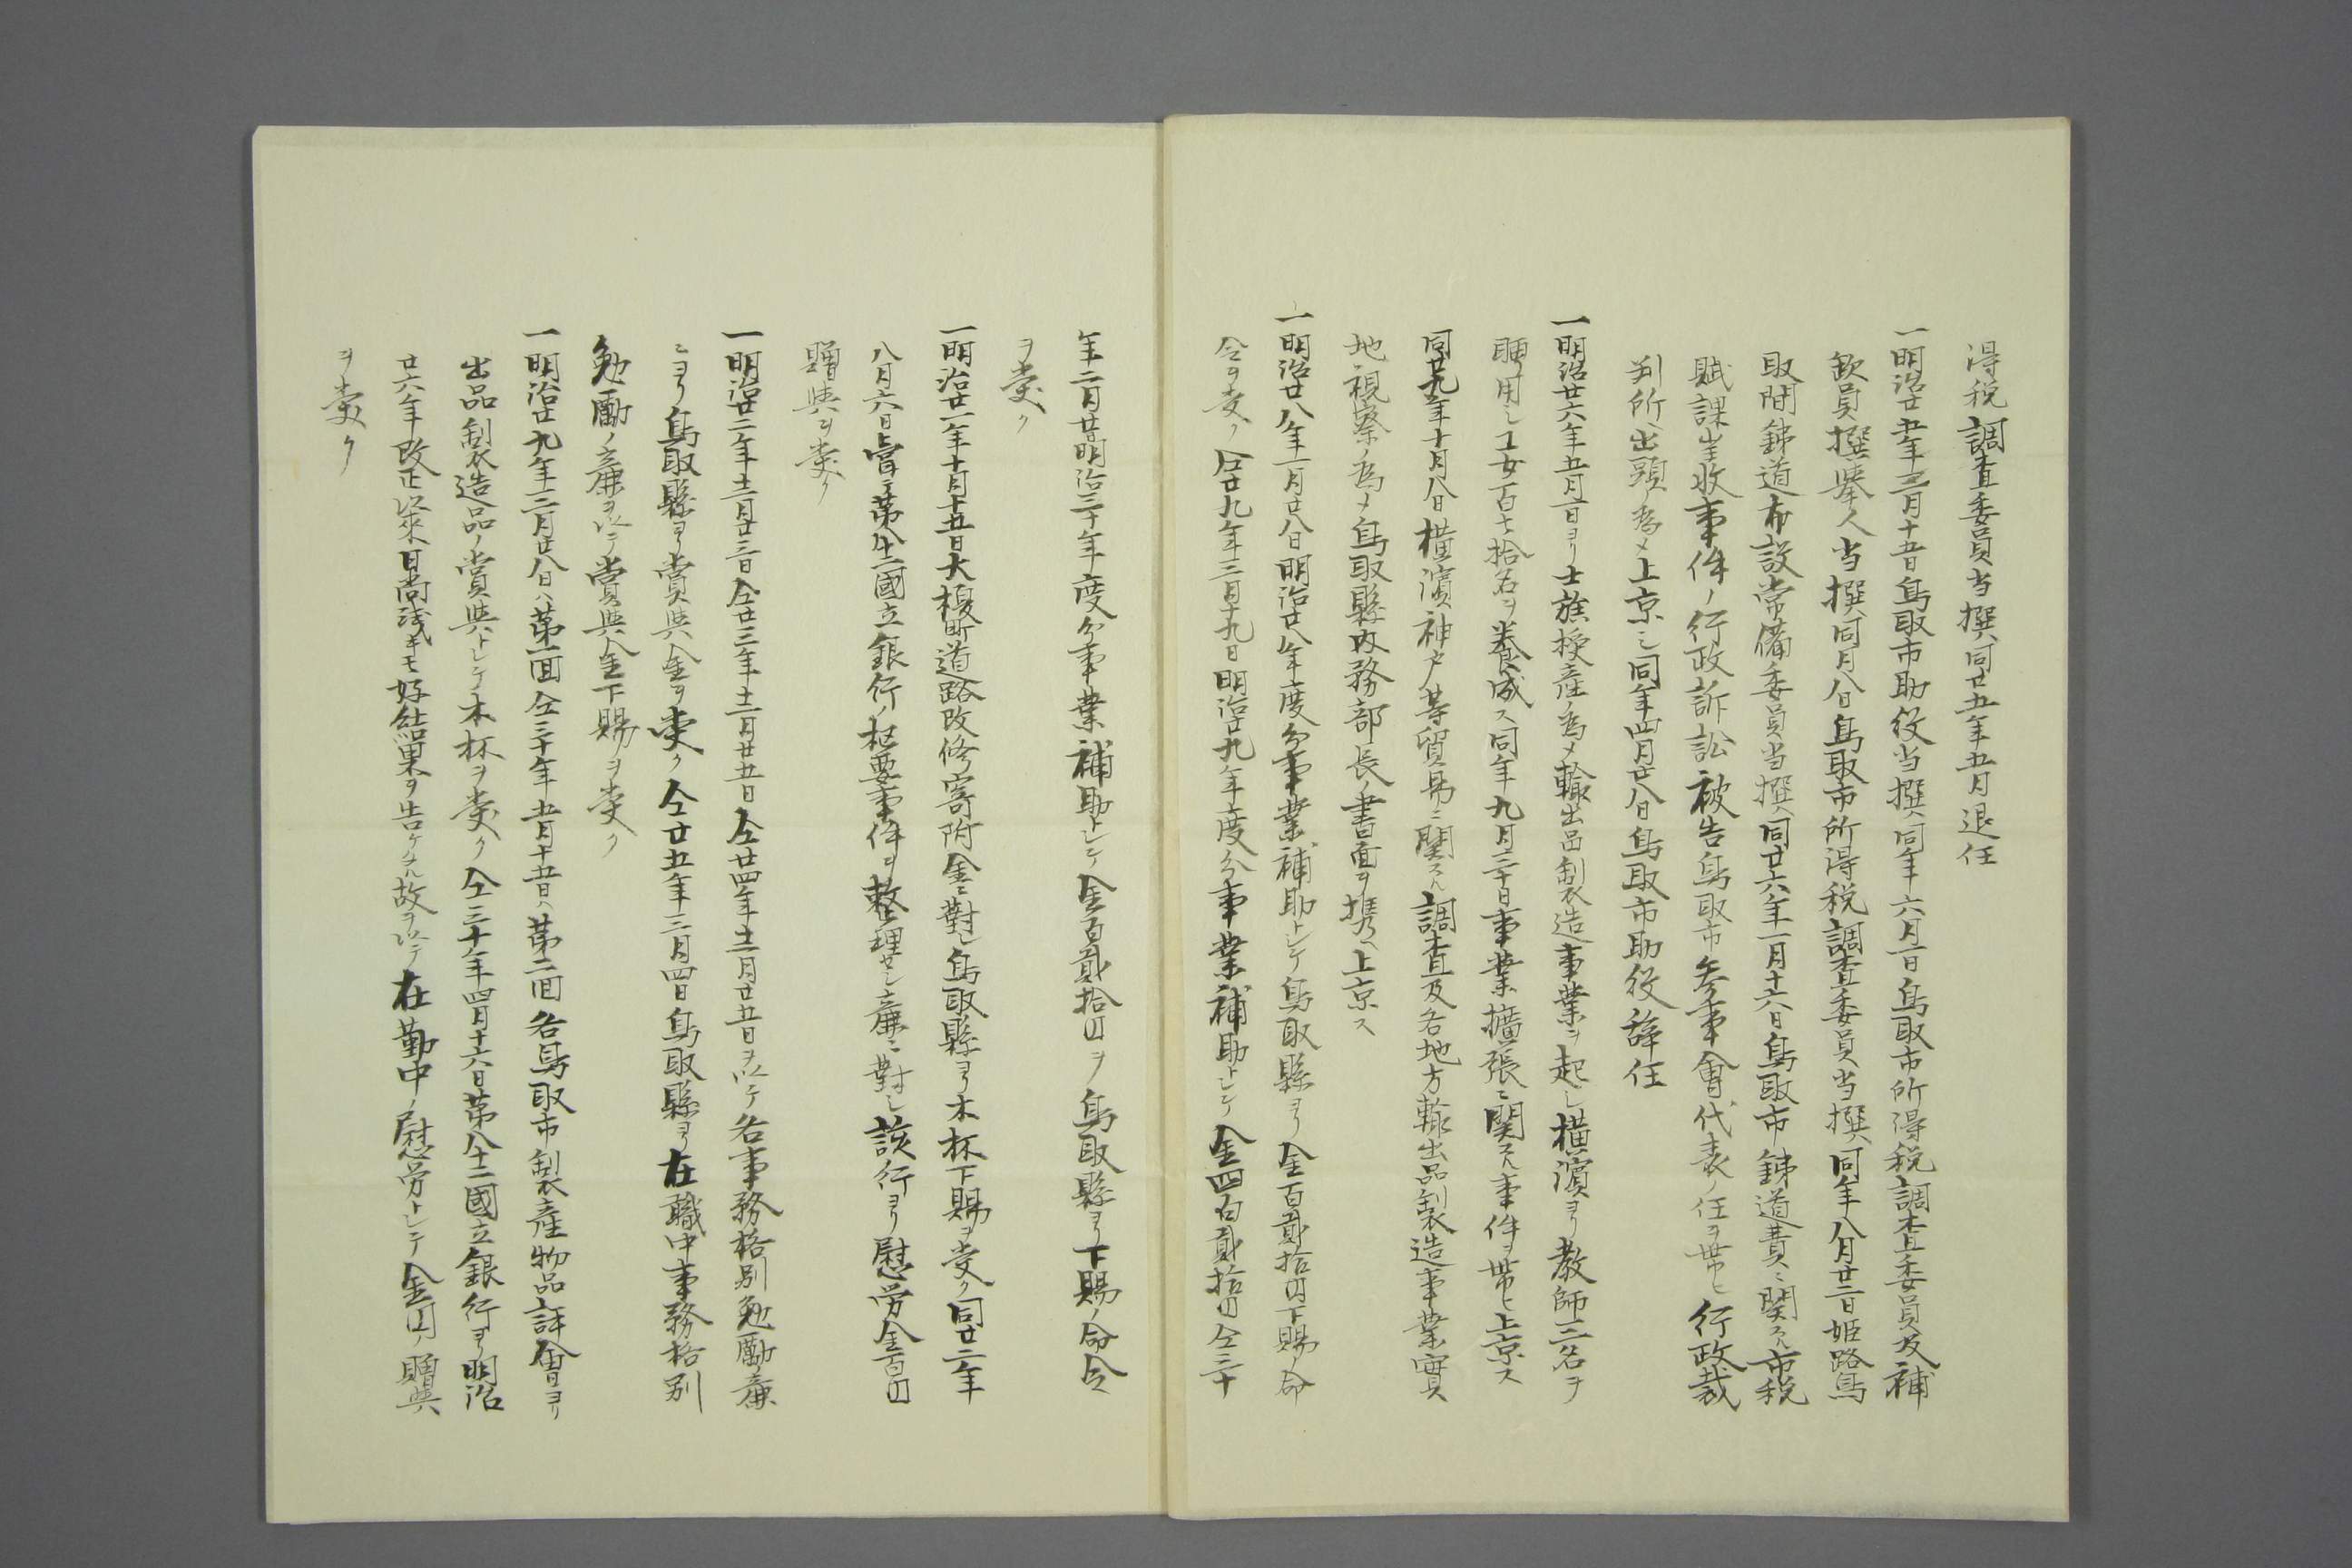 得税調査委員当撰同廿五年五月退任
一明治廿五年三月十五日鳥取市助役当撰同年六月一日鳥取市所得税調査委員及補
欽員撰挙人当撰同月八日鳥取市所得税調査委員当撰同年八月廿二日姫路鳥
取間鉄道布設常備委員当撰同廿六年一月十六日鳥取市鉄道費ニ関スル市税
賦課徴収事件ノ行政訴訟被告鳥取市参事會代表ノ任ヲ帯ヒ行政裁
判所ヘ出頭ノ為メ上京シ同年四月廿八日鳥取市助役辞任
一明治廿六年五月一日ヨリ士族授産ノ為メ輸出品製造事業ヲ起シ横濱ヨリ教師三名ヲ
聘用シ工女百七拾名ヲ養成ス同年九月三十日事業擴張ニ関スル事件ヲ帯ヒ上京ス
同廿九年十月八日横濱神戸等貿易ニ関スル調査及各地方輸出品製造事業實
地視察ノ為メ鳥取縣内務部長ノ書面ヲ携ヘ上京ス
一明治廿八年一月廿八日明治廿八年度分事業補助トシテ鳥取縣ヨリ金百貳拾円下賜ノ命
令ヲ受ク仝廿九年三月十九日明治廿九年度分事業補助トシテ金四百貳拾円仝三十
年二月廿日明治三十年度分事業補助トシテ金百貳拾円ヲ鳥取縣ヨリ下賜ノ命令
ヲ受ク
一明治廿一年十月十五日大榎町道路改修寄附金ニ對シ鳥取縣ヨリ木杯下賜ヲ受ク同廿二年
八月六日嘗テ第八十二國立銀行ノ枢要事件ヲ整理セシ廉ニ對シ該行ヨリ慰労金百円
贈與ヲ受ク
一明治廿二年十二月廿三日仝廿三年十二月廿五日仝廿四年十二月廿五日ヲ以テ各事務格別勉勵ノ廉
ニヨリ鳥取縣ヨリ賞與金ヲ受ク仝廿五年三月四日鳥取縣ヨリ在職中事務格別
勉勵ノ廉ヲ以テ賞與金下賜ヲ受ク
一明治廿九年三月廿八日ハ第一回仝三十年五月十五日ハ第二回各鳥取市製産物品評會ヨリ
出品製造品ノ賞與トシテ木杯ヲ受ク仝三十年四月十六日第八十二國立銀行ヨリ明治
廿六年改正以来日尚浅キモ好結果ヲ告ケタル故ヲ以テ在勤中ノ慰労トシテ金円ノ贈與
ヲ受ク